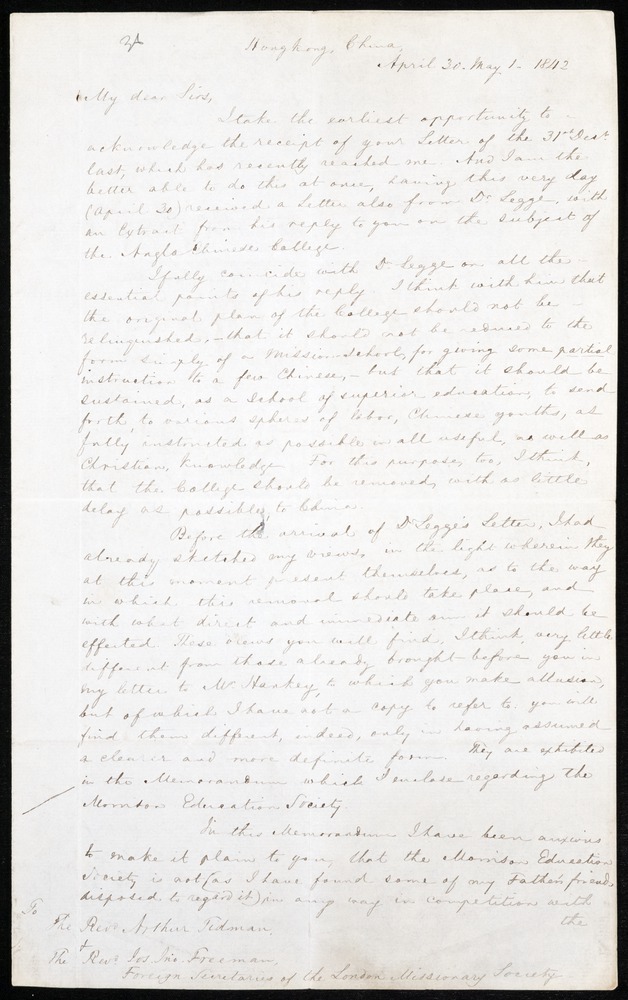 Hongkong, China,
April 30. May 1. 1842
My dear Sirs,
I take the earliest opportunity to
acknowledge the receipt of your Letter of the 31st Decr.
last, which has recently reached me. And I am the
better able to do this at once, having this very day
(April 30) received a Letter also from Dr. Legge, with
an Extract from his reply to you on the subject of
the Anglo Chinese College.
I fully coincide with Dr. Legge on all the
essential points of his reply. I think with him that
the original plan of the College should not be
relinquished, - that it should not be reduced to the
form simply of a Mission School, for giving some partial
instruction to a few Chinese, - but that it should be
sustained, as a School of superior education, to send
forth, to various spheres of labor, Chinese youths, as
fully instructed as possible in all useful, as well as
Christian, knowledge. For this purpose, too, I think,
that the College should be removed, with as little
delay as possible, to China.
Before the arrival of Dr. Legge's Letter, I had
already sketched my views, in the light wherein they
at this moment present themselves, as to the way
in which this removal should take place, and
with what direct and immediate aim it should be
effected. These views you will find, I think, very little
different from those already brought before you in
my letter to Mr. Hankey, to which you make allusion,
but of which I have not a copy to refer to. You will
find them different, indeed, only in having assumed
a clearer and more definite form. They are exhibited
in the Memorandum which I enclose regarding the
Morrison Education Society.
In this Memorandum I have been anxious
to make it plain to you, that the Morrison Education
Society is not (as I have found some of my Father's friends
disposed to regard it) in any way in competition with
the
To
The Revd. Arthur Tidman,
+
The Revd. Jos. Jno. Freeman,
Foreign Secretaries of the London Missionary Society